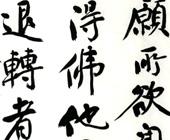 願所欲聞
得佛他
退轉者